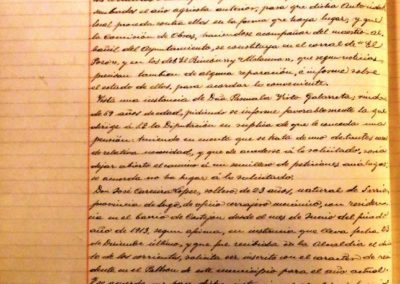 sembrados el año agrícola anterior, para que dicha Autoridad
local proceda contra ellos en la forma que haya lugar, y que
la Comisión de Obras, haciéndose acompañar del maestro al-
bañil del Ayuntamiento, se constituya en el corral de "El
y en los del Rincón y que según noticias,
precisan también de alguna reparación, e informe sobre
el estado de ellos, para acordar lo conveniente.
Vista una instancia de Dña Pascuala Gabarrota, viuda
de 69 años de edad, pidiendo se informe favorablemente la que
dirige a la Diputación en súplica de que le conceda una
pensión: teniendo en cuenta que se trata de uno de tantos casos
de relativa necesidad, y que de accederse a lo solicitado, sería
dejar abierto el camino a un semillero de peticiones análogas,
se acuerda no ha lugar a lo solicitado.
Don José López, soltero, de 23 años, natural de
provincia de Lugo, de oficio cerrajero mecánico, con residen-
cia en el barrio de Castejón desde el mes de Junio del pasado
año de 1913, según afirma, en instancia que lleva fecha 23
de Diciembre último, y que fue recibida en la Alcaldía el dos
de los corrientes, solicita ser inscrito con el carácter de resi-
dente en el Padrón de este municipio para el año actual.